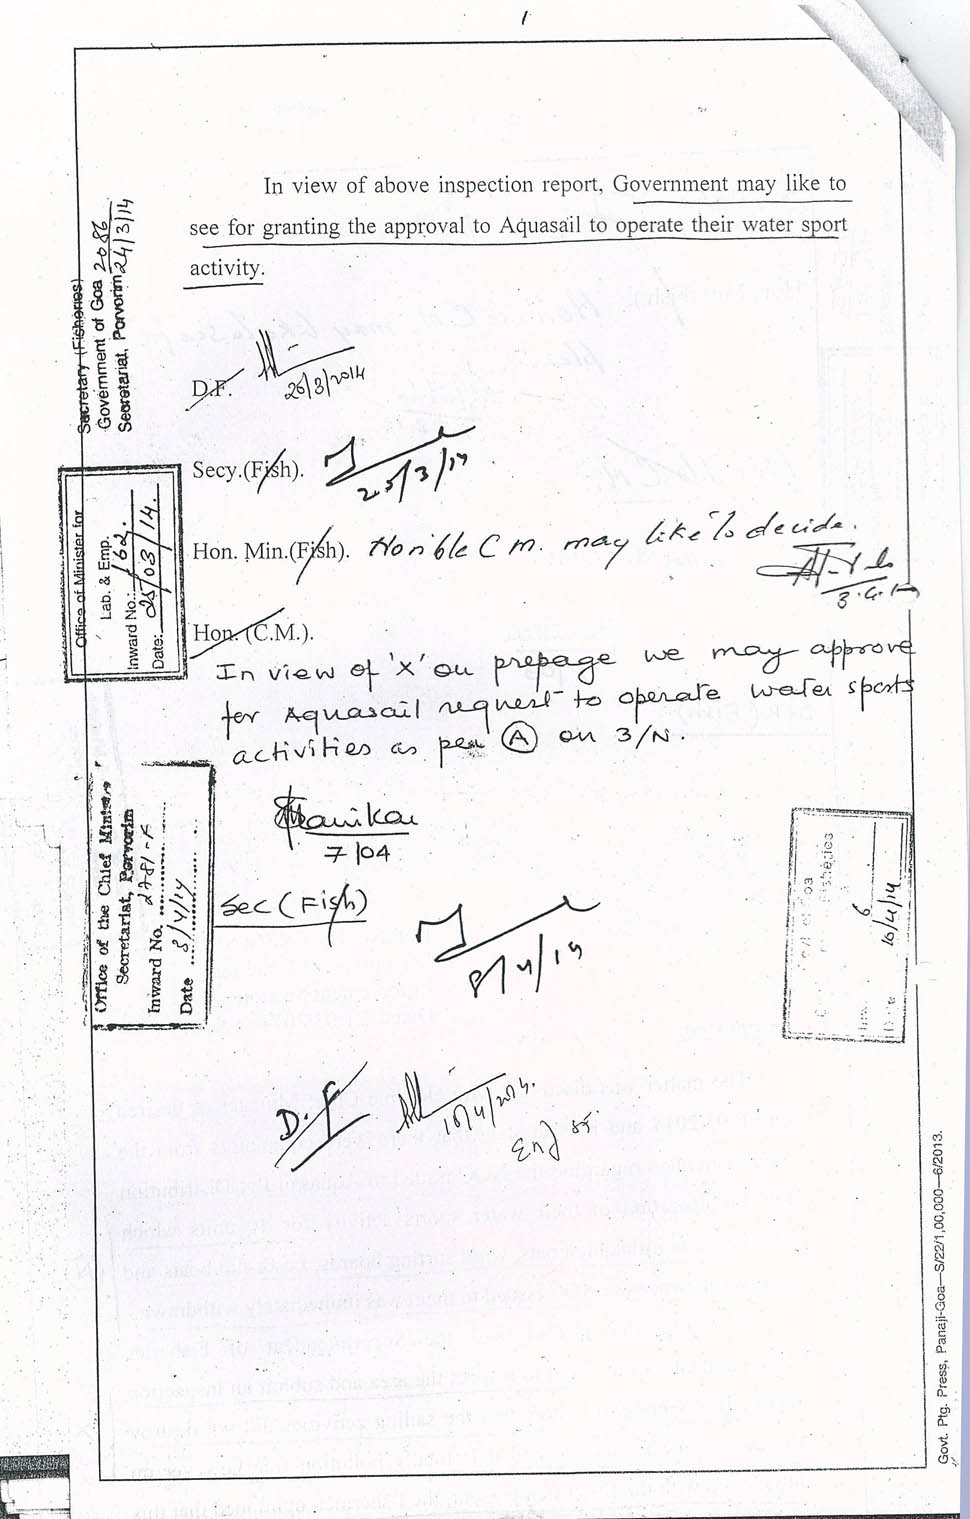 1
In view of above inspection report, Government may like to
see for granting the approval to Aquasail to operate their water sport
activity.
Secretary (Fisheries)
Government of Goa 2086
Secretariat, Porvorim 24/3/14
D.F.
26/3/2014
Secy.(Fish).
25/3/14
Office of Minister for
Lab. & Emp.
Inward No.: 162.
Date: 25/03/14.
Hon. Min.(Fish). Hon'ble C M. may like to decide.
Hon. (C.M.).
In view of 'X' on prepage we may approve
for Aquasail request to operate water sports
activities as per (A) on 3/N.
7/04
Office of the Chief Minister
Secretariat, Porvorim
Inward No.
Date 8/4/14
Sec (Fish)
8/4/14
Fisheries
10/4/14
D.F
10/4/2014.
End
Govt. Ptg. Press, Panaji-Goa—S/22/1,00,000—6/2013.